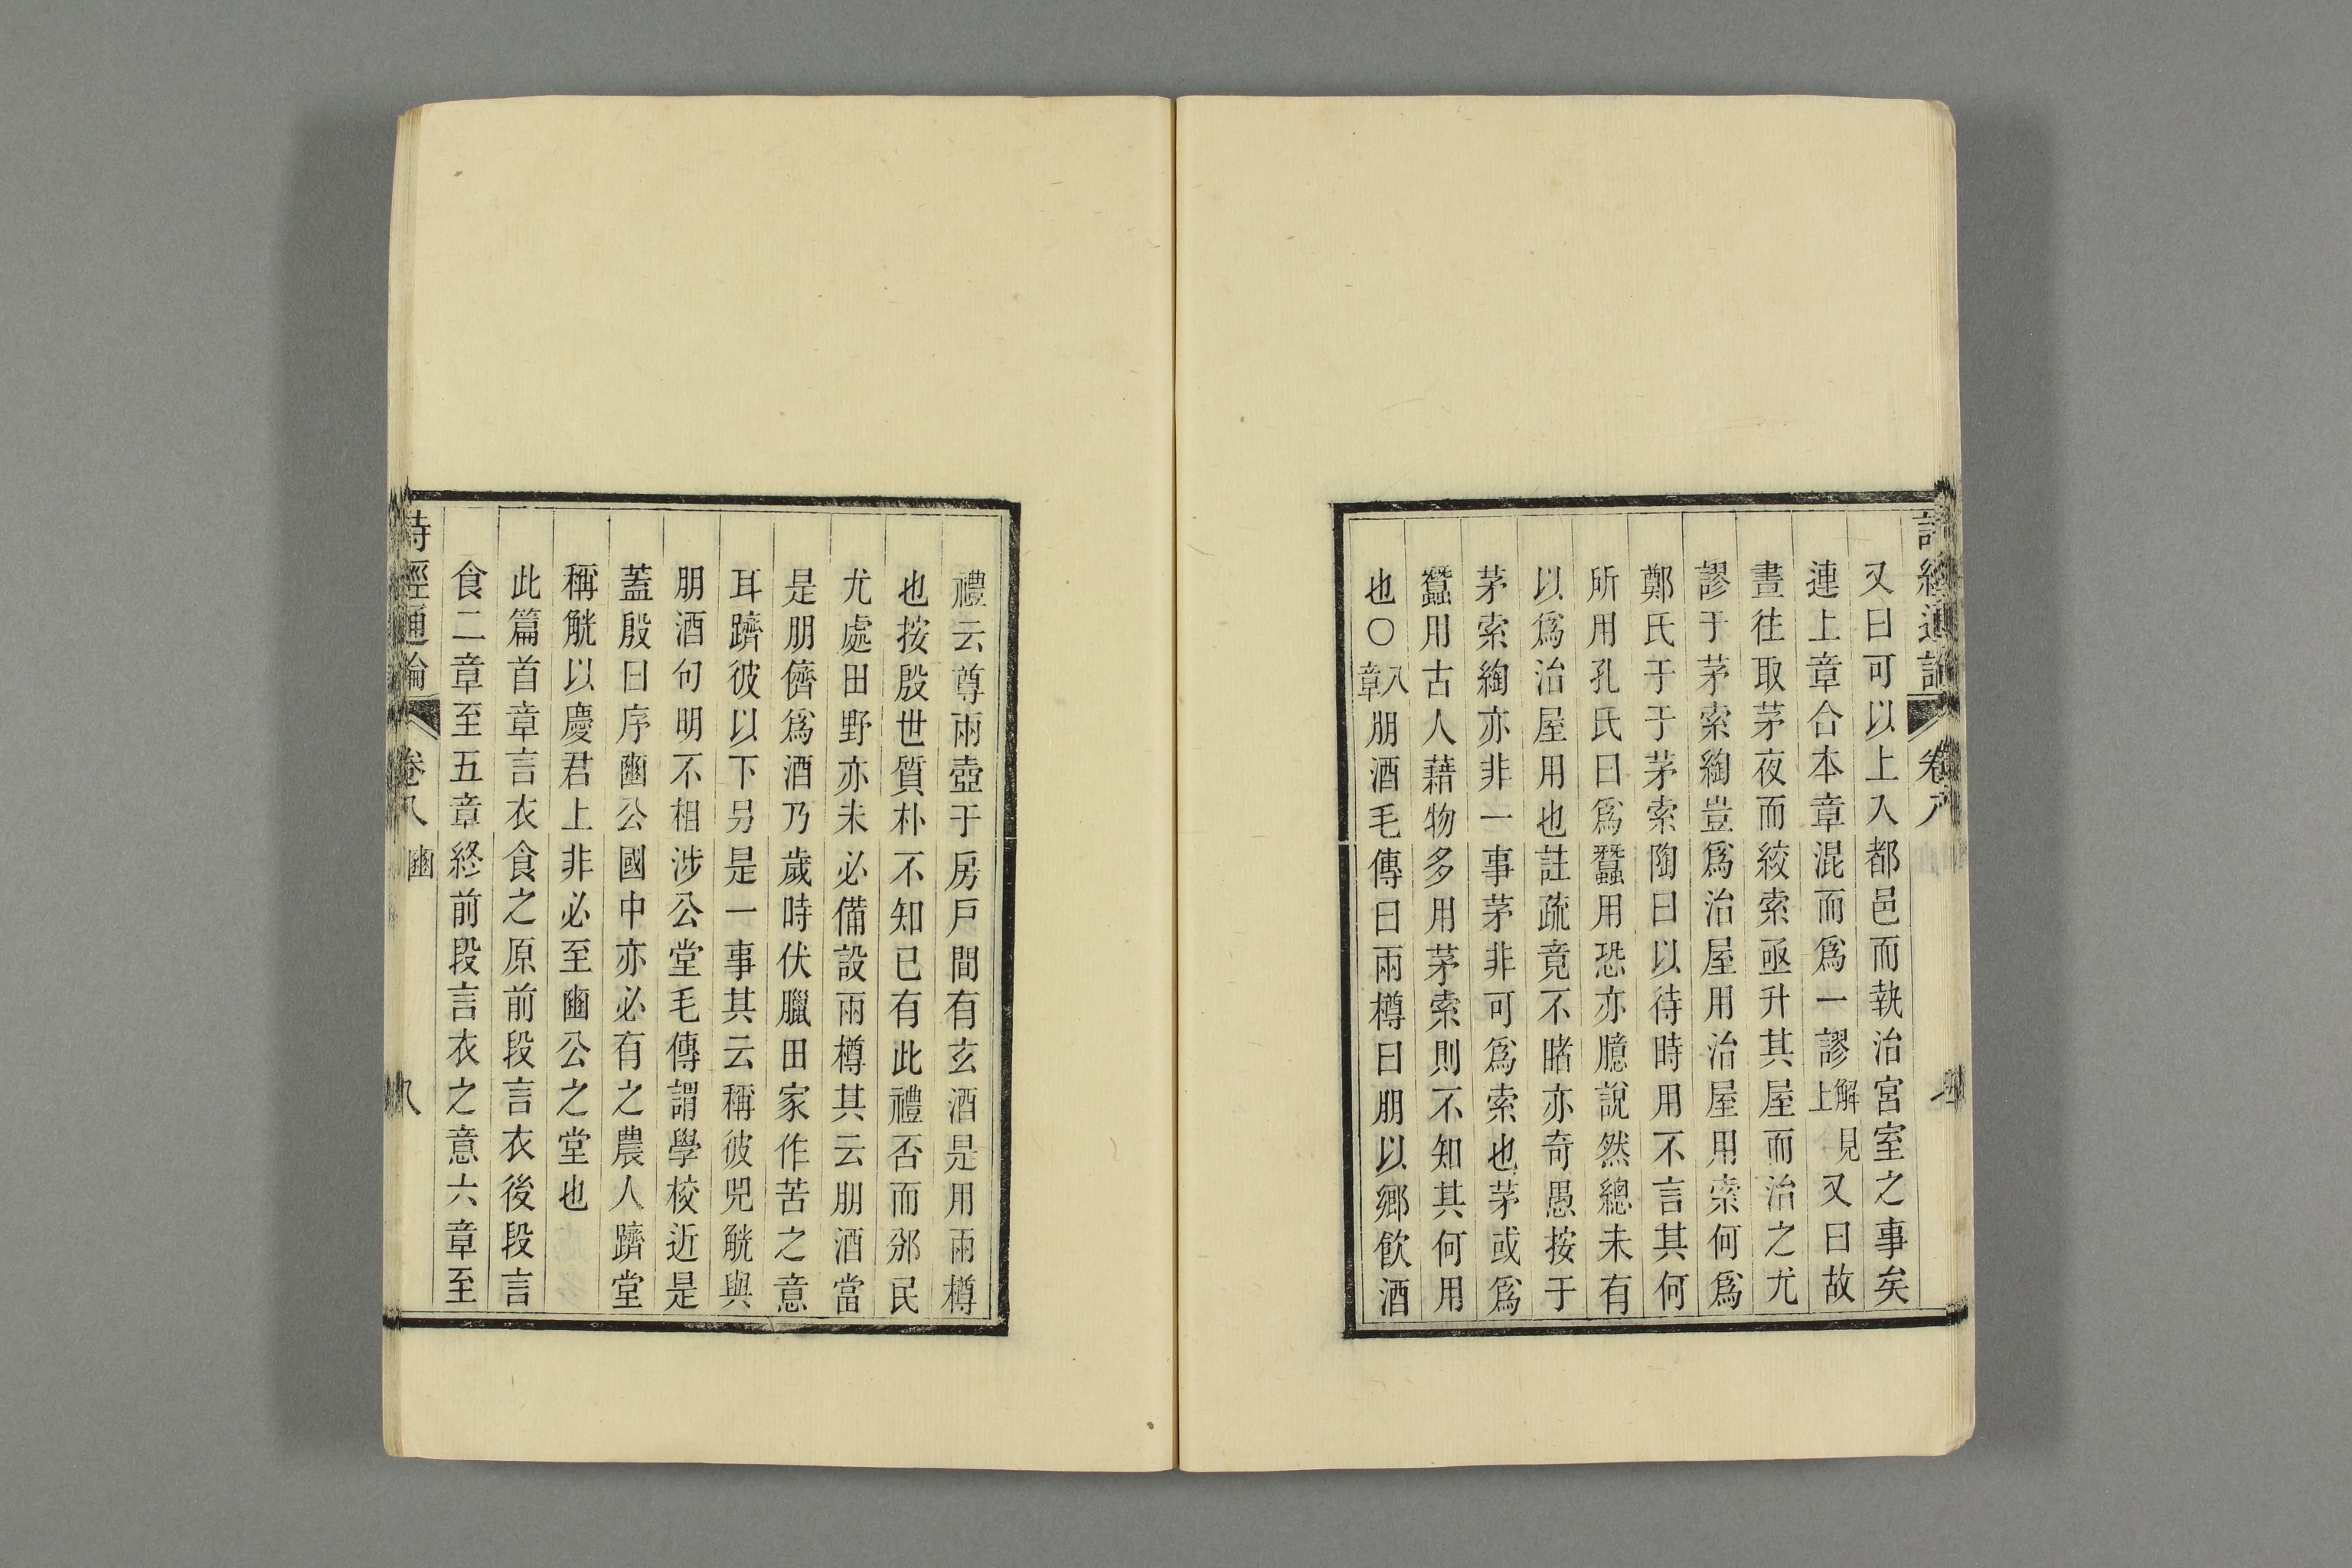 又曰可以上入都邑而執治宮室之事矣
連上章合本章混而爲一謬解見上又曰故
晝往取茅夜而絞索亟升其屋而治之尤
謬于茅索綯豈爲治屋用治屋用索何爲
鄭氏于于茅索陶曰以待時用不言其何
所用孔氏曰爲蠶用恐亦臆說然總未有
以爲治屋用也註疏竟不睹亦奇愚按于
茅索綯亦非一事茅非可爲索也茅或爲
蠶用古人藉物多用茅索則不知其何用
也○八章朋酒毛傳曰兩樽曰朋以鄉飲酒
禮云尊兩壺于房戶間有玄酒是用兩樽
也按殷世質朴不知已有此禮否而邠民
尤處田野亦未必備設兩樽其云朋酒當
是朋儕爲酒乃歲時伏臘田家作苦之意
耳躋彼以下另是一事其云稱彼兕觥與
朋酒句明不相涉公堂毛傳謂學校近是
蓋殷曰序豳公國中亦必有之農人躋堂
稱觥以慶君上非必至豳公之堂也
此篇首章言衣食之原前段言衣後段言
食二章至五章終前段言衣之意六章至
詩經通論 卷八 豳 八